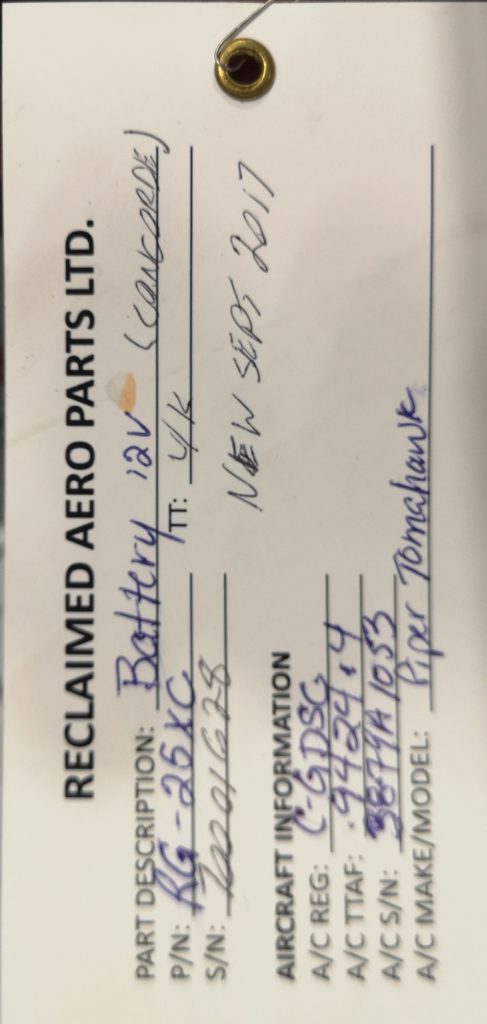 RECLAIMED AERO PARTS LTD.
PART DESCRIPTION: Battery 12V (CONCORDE)
P/N: RG-25XC TT: U/K
S/N:
NEW SEPT 2017
AIRCRAFT INFORMATION
A/C REG: C-GDSG
A/C TTAF: 9424.4
A/C S/N: 38-79A1053
A/C MAKE/MODEL: Piper Tomahawk